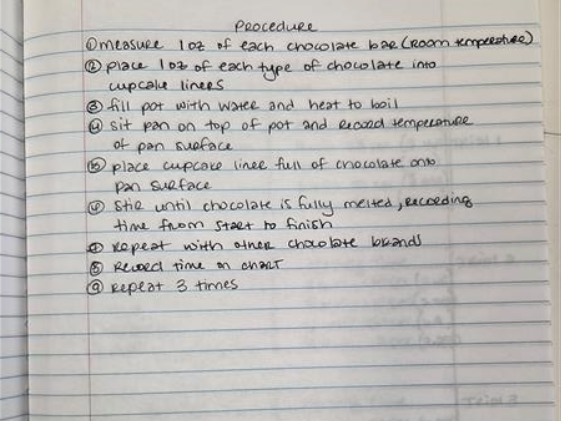 Procedure
① measure 1oz of each chocolate bar (room temperature)
② place 1oz of each type of chocolate into
cupcake liners
③ fill pot with water and heat to boil
④ sit pan on top of pot and record temperature
of pan surface
⑤ place cupcake liner full of chocolate onto
pan surface
⑥ stir until chocolate is fully melted, recording
time from start to finish
⑦ repeat with other chocolate brands
⑧ Record time on chart
⑨ repeat 3 times